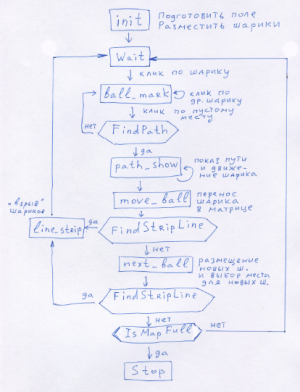 init
Подготовить поле
Разместить шарики
Wait
клик по шарику
ball_mark
клик по
др. шарику
клик по пустому
месту
нет
FindPath
да
path_show
показ пути
и движе-
ние шарика
move_ball
перенос
шарика
в матрице
"взрыв"
шариков
line_strip
да
FindStripLine
нет
next_ball
размещение
новых ш.
и выбор места
для новых ш.
да
FindStripLine
нет
IsMapFull
нет
да
Stop